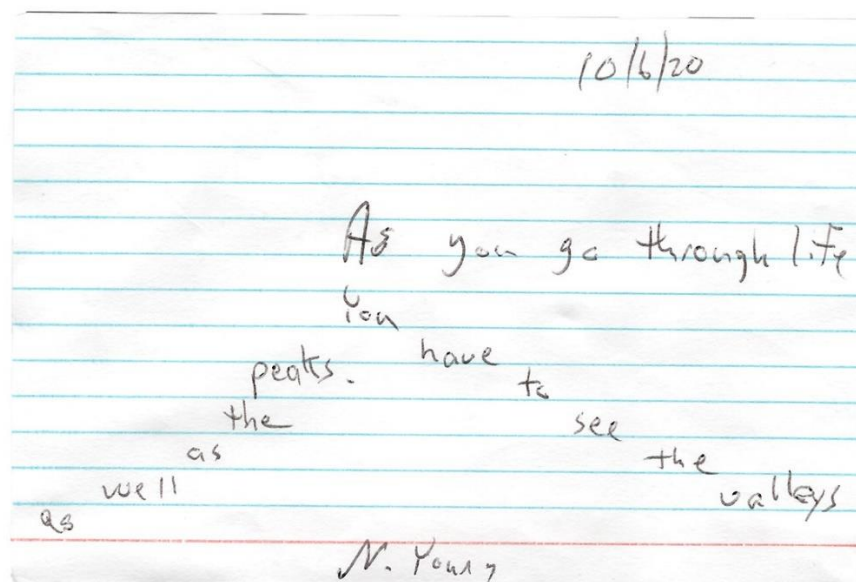 10/6/20
As you go through life
You
have
to
see
the
valleys
as
well
as
the
peaks.
N. Young